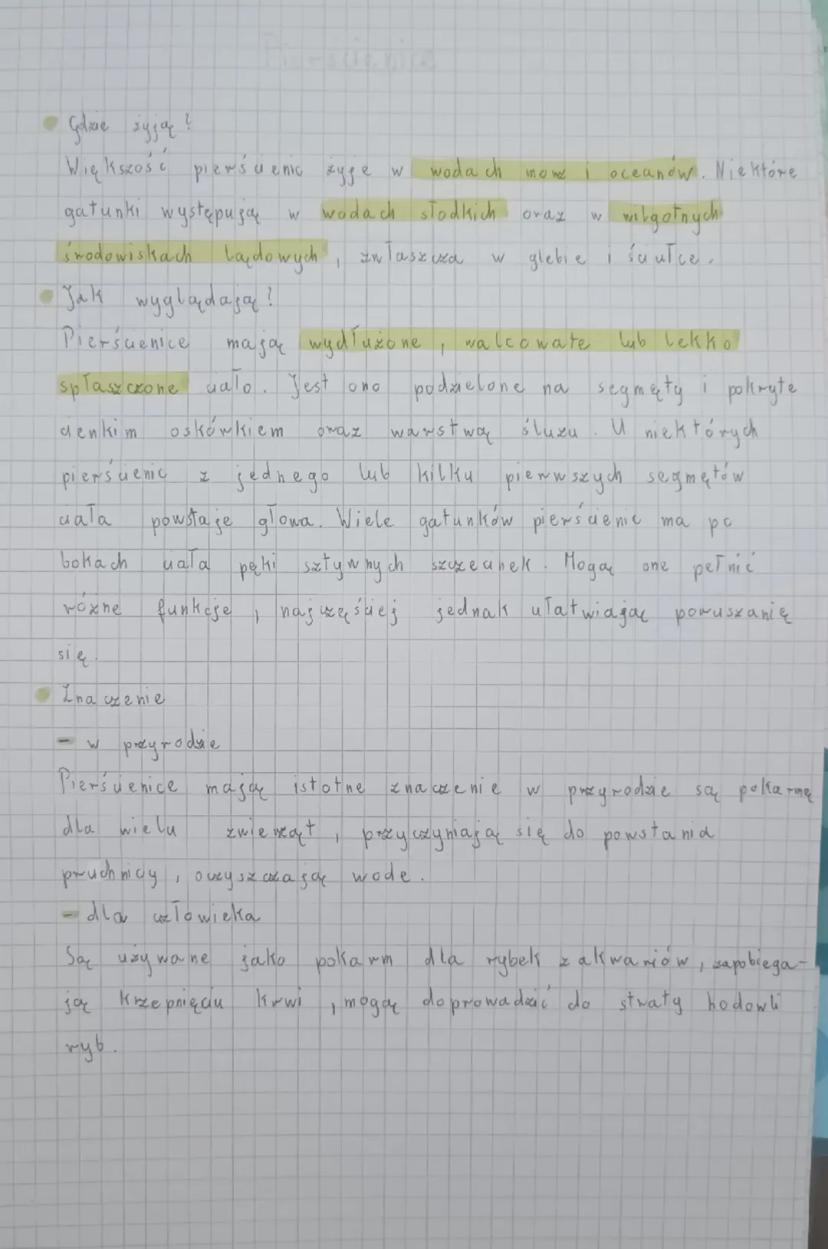 • Gdzie żyją?
Większość pierścienic żyje w wodach morz i oceanów. Niektóre
gatunki występują w wodach słodkich oraz w wilgotnych
środowiskach lądowych, zwłaszcza w glebie i ściułce.
• Jak wyglądają?
Pierścienice mają wydłużone, walcowate lub lekko
spłaszczone ciało. Jest ono podzielone na segmęty i pokryte
cienkim oskórkiem oraz warstwą śluzu. U niektórych
pierścienic z jednego lub kilku pierwszych segmętów
ciała powstaje głowa. Wiele gatunków pierścienic ma po
bokach ciała pęki sztywnych szczecinek. Mogą one pełnić
różne funkcje, najczęściej jednak ułatwiają poruszanię
się.
• Znaczenie
- w przyrodzie
Pierścienice mają istotne znaczenie w przyrodzie są pokarmę
dla wielu zwierząt, przyczyniają się do powstania
pruchnicy, oczyszczają wode.
- dla człowieka
Są używane jako pokarm dla rybek z akwariów, zapobiega-
ją krzepnięciu krwi, mogą doprowadzić do straty hodowli
ryb.